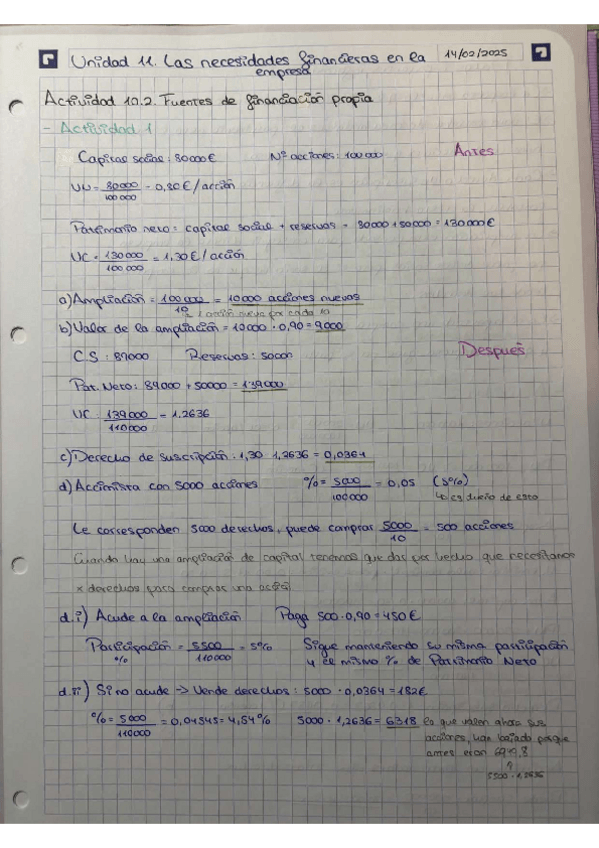 Unidad 11. Las necesidades financieras en la empresa
14/02/2025
Actividad 10.2. Fuentes de financiación propia
- Actividad 1
Capital social: 80000€ Nº acciones: 100000 Antes
VN = 80000/100000 = 0,80€/acción
Patrimonio neto = capital social + reservas = 80000 + 50000 = 130000€
VC = 130000/100000 = 1,30€/acción
a) Ampliación = 100000/10 = 10000 acciones nuevas
1 acción nueva por cada 10
b) Valor de la ampliación = 10000 · 0,90 = 9000
C.S: 89000 Reservas: 50000 Después
Pat. Neto: 89000 + 50000 = 139000
VC 139000/110000 = 1.2636
c) Derecho de suscripción · 1,30 1,2636 = 0,0364
d) Accionista con 5000 acciones % = 5000/100000 = 0,05 (5%)
es dueño de esto
Le corresponden 5000 derechos, puede comprar 5000/10 = 500 acciones
Cuando hay una ampliación de capital tenemos que dar por hecho que necesitamos
x derechos para comprar una acción
d.i) Acude a la ampliación Paga 500 · 0,90 = 450€
Participación = 5500/110000 = 5% Sigue manteniendo su misma participación
% y el mismo % de Patrimonio Neto
d.ii) Si no acude -> Vende derechos: 5000 · 0,0364 = 182€
% = 5000/110000 = 0,04545 = 4,54% 5000 · 1,2636 = 6318 lo que valen ahora sus
acciones, han bajado porque
antes eran
5500 · 1,2636